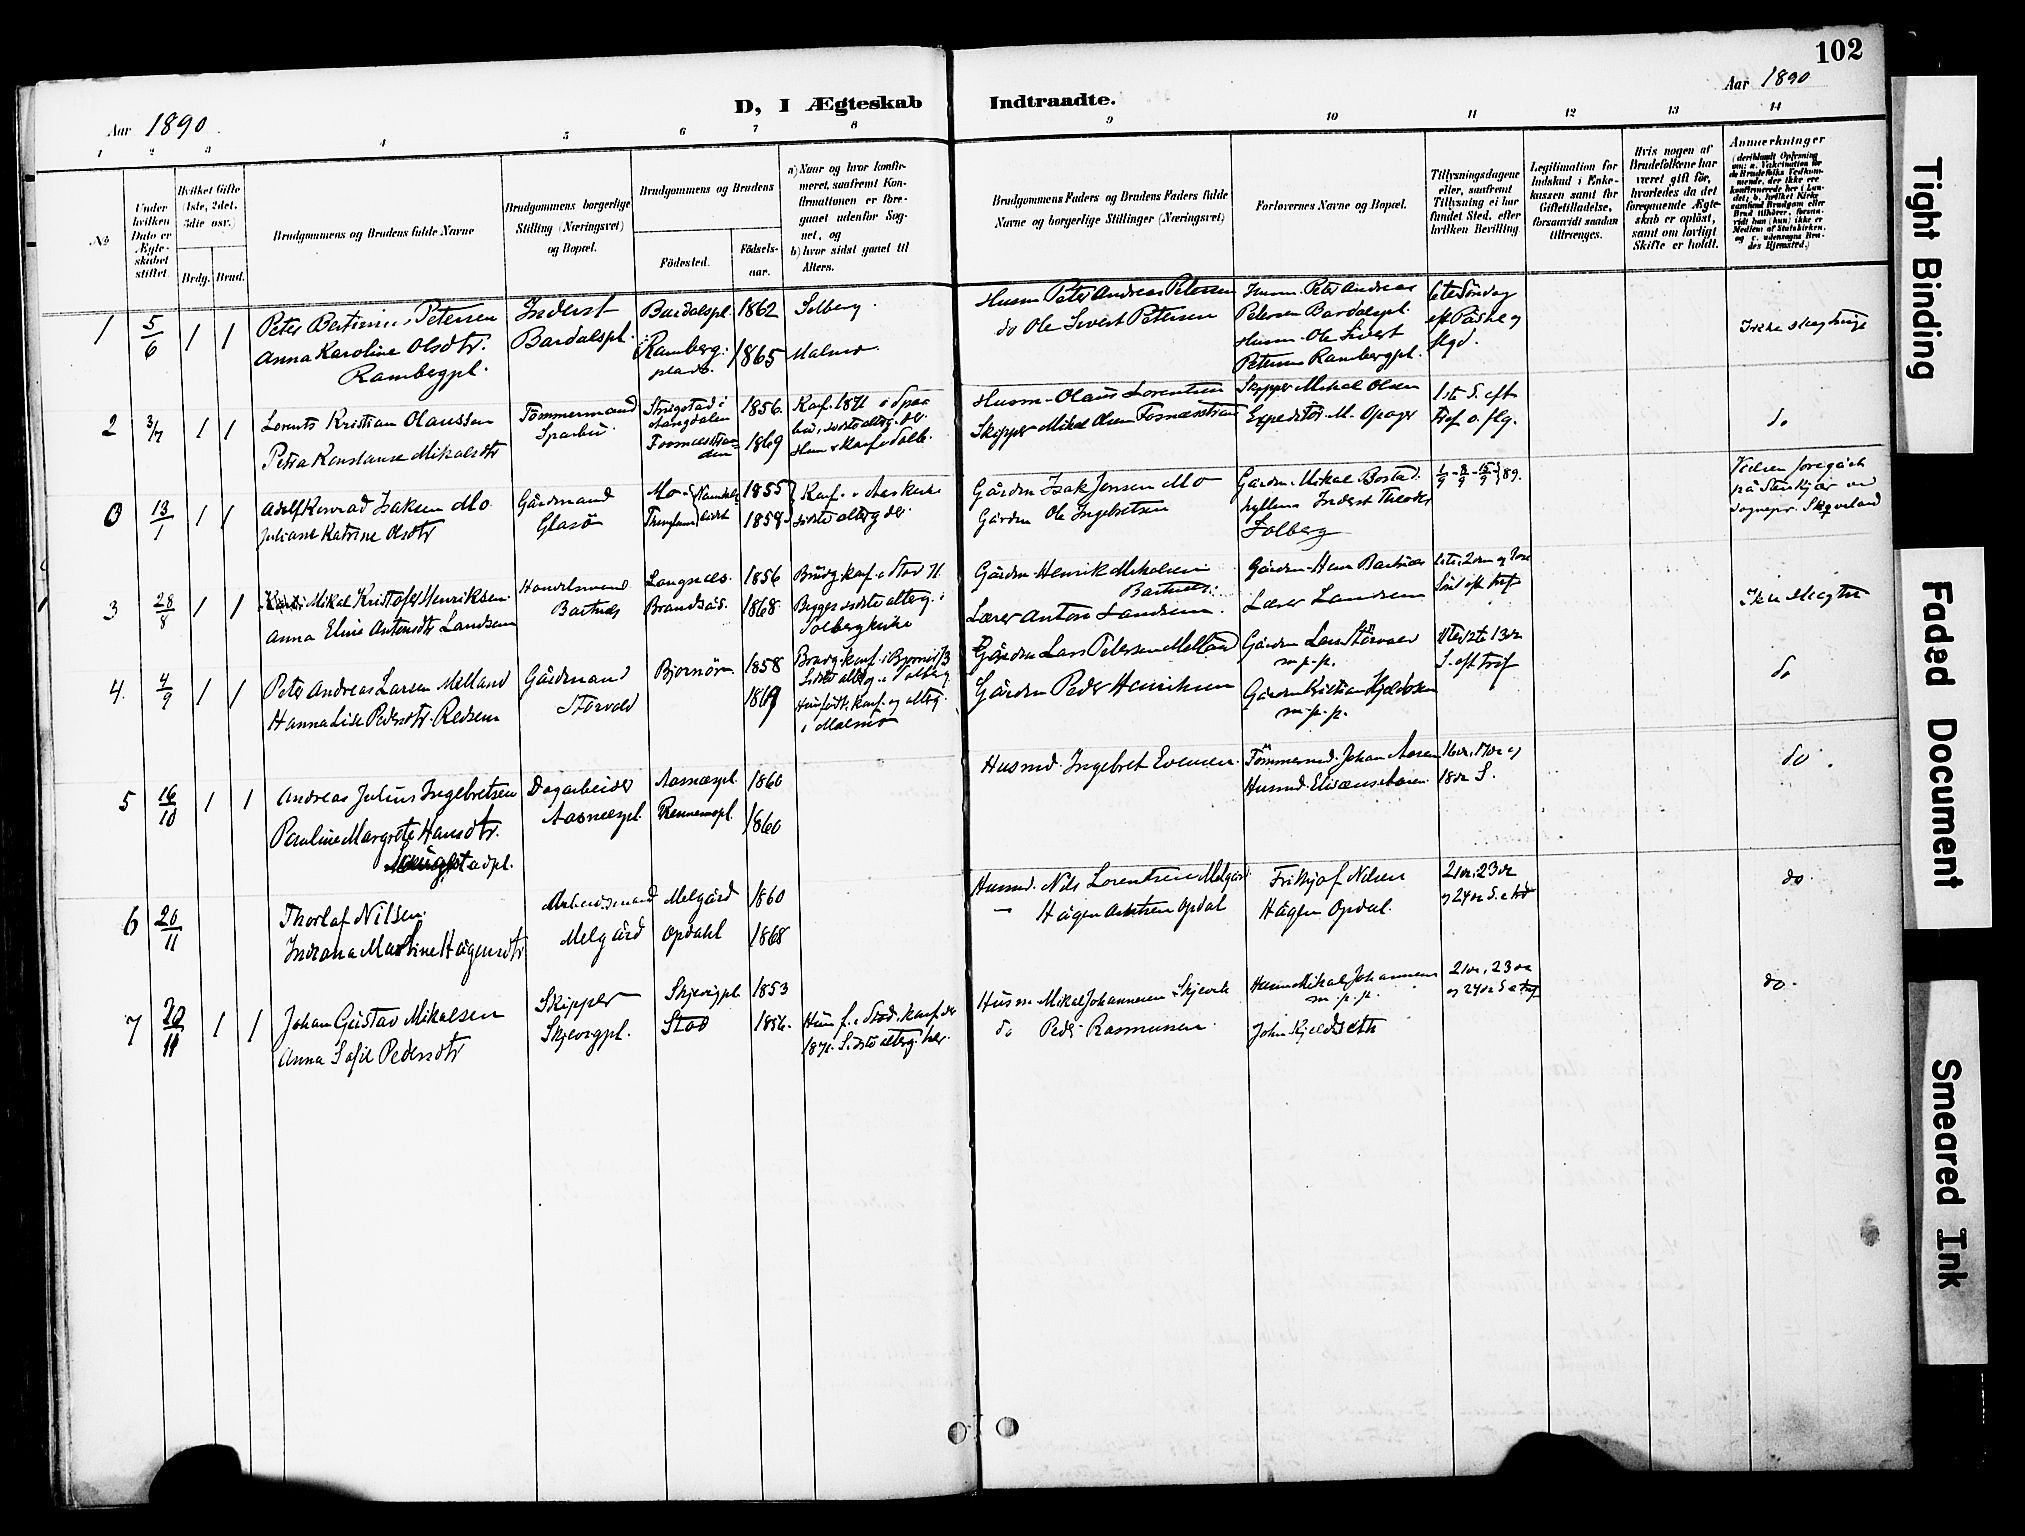 102
Aar 1890
D, I Ægteskab Indtraadte.
Aar 1890
1 2 3 4 5 6 7 8 9 10 11 12 13 14
No
Under hvilken Dato er Ægteskabet stiftet.
Hvilket Gifte (1ste, 2det, 3die osv.)
Brdg. Brud.
Brudgommens og Brudens fulde Navne
Brudgommens borgerlige Stilling (Næringsvei) og Bopæl.
Brudgommens og Brudens
Födested.
Födselsaar.
a) Naar og hvor konfirmeret, saafremt Konfirmationen er foregaaet udenfor Sognet, og
b) hvor sidst gaaet til Alters.
Brudgommens Faders og Brudens Faders fulde Navne og borgerlige Stillinger (Næringsvei)
Forlovernes Navne og Bopæl.
Tillysningsdagene eller, saafremt Tillysning ei har fundet Sted, efter hvilken Bevilling
Legitimation for Indskud i Enkekassen samt for Giftetilladelse, forsaavidt saadan tiltrænges.
Hvis nogen af Brudefolkene har været gift för, hvorledes da det foregaaende Ægteskab er oplöst, samt om lovligt Skifte er holdt.
Anmærkninger
1 5/6 1 1
Peter Bertinius Petersen
Anna Karoline Olsdtr.
Rambergpl.
Inderst
Bardalspl.
Bardalspl. 1862 Solberg.
Ramberg plads. 1865 Malmo.
Husm Peter Andreas Petersen
do Ole Sivert Petersen
Husm. Peter Andreas
Petersen Bardalspl.
Husm. Ole Sivert
Petersen Rambergpl.
6te Söndag
eft Paaske og
flgd.
Ikke slegtninge
2 3/7 1 1
Lorents Kristian Olaussen
Petra Konstanse Mikalsdtr
Tömmermand
Sparbu.
1856.
1869
Konf. 1871 i Sparbu, sidste alterg. der.
Husm. Olaus Lorentsen
Skipper Mikal Olsen Fosnæsstran
Skipper Mikal Olsen
Expeditör M. Opager
1ste S. eft
Tref o. flg.
do
0 13/1 1 1
Adolf Konrad Isaksen Mo
Juliane Katrine Olsdtr
Gårdmand
Glasö
Mo 1855
1858
sidste alterg der.
Gårdm Isak Jensen Mo
Gårdm Ole Ingebretsen
Gårdm. Mikal Bostad.
Inderst Theodor
Solberg
1/9 - 8/9 - 15/9 } 89.
Vielsen foregået
på Stenkjær ved
sognepr. Skavland
3 28/8 1 1
Mikal Kristofer Henriksen
Anna Eline Antonsdtr Landsem
Handelsmand
Bartnes
Langnæs. 1856
Brandsås. 1868.
Brudg. konf. i Stod 71.
Begges sidste alterg. i
Solberg kirke
Gårdm. Henrik Mikalsen
Bartnes.
Lærer Anton Landsem.
Gårdm. Hem Bartnæs
Lærer Landsem
Ikke slegtn
4. 4/9 1 1
Peter Andreas Larsen Melland
Hanna Lise Pedersdtr. Redsem
Gårdmand
Störvold
Björnör. 1858
1869
Brudg. konf. i Björnör 73
Sidste alterg. i Solberg
konf. og alterg.
i Malmo
Gårdm Lars Petersen Melland
Gårdm Peder Henriksen
Gårdm Lars Störvold
m.p.p.
Gårdm Kristian Kjeldsen
m.p.p.
S. eft tref
do
5 16/10 1 1
Andreas Julius Ingebretsen
Pauline Margrete Hansdtr.
Dagarbeider
Aasnæspl.
Aasnæspl. 1860
Rennemspl. 1860
Husmd. Ingebret Evensen.
Tömmermd. Johan Aasen
Husmd. Elisæus Aasen
16de, 17de og
18de S.
do.
6 20/11
Thorlaf Nilsen.
Indiana Martine Hågensdtr
Arbeidsmand
Melgård
Melgård 1860
Opdahl 1868
Husmd. Nils Lorentsen Melgård
— Hågen Arntsen Opdal
Frithjof Nilsen
Hågen Opdal.
21de, 23de
og 24de S. e tref
do.
7 20/11 1 1
Johan Gustav Mikalsen
Anna Sofie Pedersdtr
Skipper
Skjevigpl.
Skjevigpl. 1853
Stod 1856.
Hun f. i Stod. konf. der
1871. Sidste alterg. her.
Husm Mikal Johannesen Skjevik
do Peder Rasmussen.
Husm Mikal Johannesen
m.p.p.
John Kjeldseth
21de, 23de
og 24de S e tref
do.
Tight Binding
Faded Document
Smeared Ink